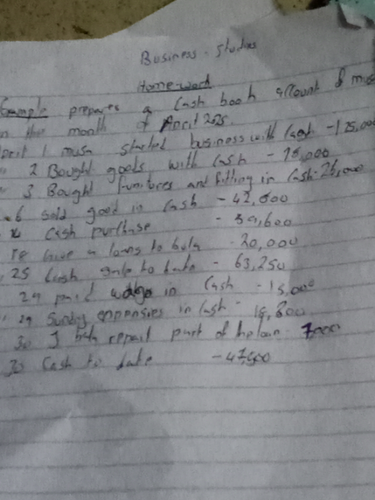 Business - Studies
Home-work
Example prepare a Cash book account of musa
in the month of April 2025
April 1 musa started business with Cash - 125,000
" 2 Bought goods with Cash - 75,000
" 3 Bought furnitures and fitting in Cash
6 sold good in Cash - 42,500
Cash purchase - 39,600
18 Give a loans to bola - 20,000
25 Cash sale to date - 63,250
29 paid in Cash - 15,000
" 29 Sundry expenses in Cash - 16,800
30 repaid part of he loan - 7000
30 Cash to date - 47,500